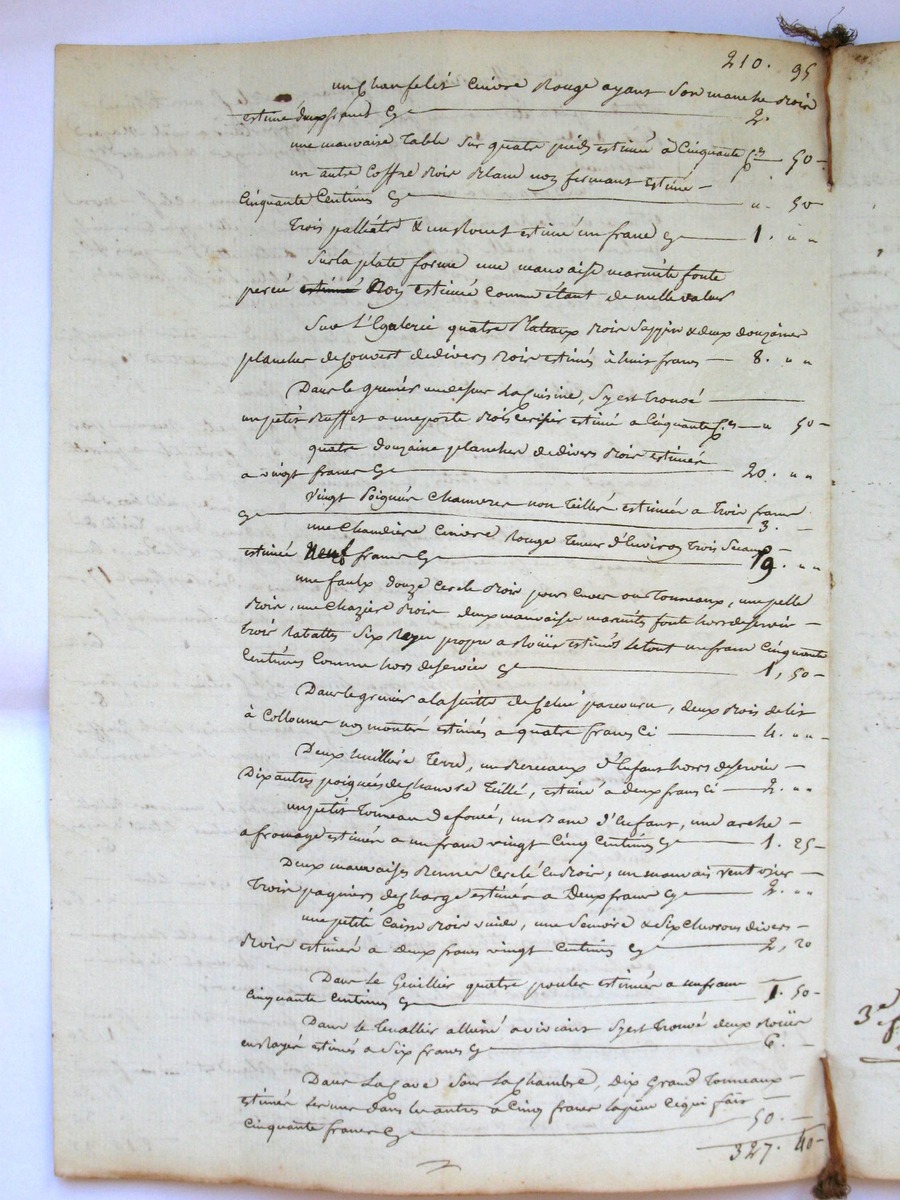 210. 95
un Chaufelit Cuivre Rouge ayant son manche Bois
estimé deux francs Cy 2.
une mauvaise Table sur quatre pieds estimée à Cinquante C.es 50
un autre Coffre Bois Blanc non fermant estimé
Cinquante Centimes Cy " 50
Trois palliats & un estimé un franc Cy 1. " "
Sur la plate forme une mauvaise marmite fonte
percée estimée Non estimée Comme étant de nulle valeur
Sur L'Egalerie quatre Plateaux Bois Sappin & deux douzaines
plancher de Couvert de divers Bois estimés à huit francs 8. " "
Dans le grenier au dessus La Cuisine, S'y est Trouvé
un petit Buffet a une porte Bois Cerisier estimé a Cinquante C.es " 50
quatre douzaine plancher de divers Bois estimées
a vingt francs Cy 20. " "
Vingt Poignées Chanvre non Teillé estimées a Trois francs
Cy 3.
une Chaudiere Cuivre Rouge Teneur d'Environ Trois Seaux
estimée Neuf francs Cy 9. " "
une faulx douze Cercle Bois pour Cuves ou Tonneaux, une pelle
Bois, une Chaziere Bois deux mauvaise marmites fonte hors de Servir
Trois Rabattes Six propre a estimés le tout un franc Cinquante
Centimes Comme hors de Servir Cy 1, 50
Dans le grenier a la suitte de Celui parcouru, deux Bois de lit
à Collonnes non montés estimés a quatre francs Ci 4. " "
Deux Terre, un Berceaux d'Enfant hors de Servir
Dix autres poignées de Chanvre Teillé, estimé a deux francs Ci 2. " "
un petit Tonneau defoncé, un Banc d'Enfant, une arche
a fromage estimée a un franc vingt Cinq Centimes Cy 1. 25
Deux mauvaises Cerclé en Bois, un mauvais
Trois paquiers de Charge estimée a Deux francs Cy 2. " "
une petite Caisse Bois vuide, une & Six Chevrons divers
Bois estimée a deux francs vingt Centimes Cy 2, 20
Dans Le quatre poules estimées a un franc
Cinquante Centimes Cy 1. 50
Dans le S'y est Trouvé deux
enrayés estimés a Six francs Cy 6.
Dans La Cave Sous La Chambre, Dix Grand Tonneaux
estimés les uns dans les autres a Cinq francs la piece Ce qui fait
Cinquante francs Cy 50.
327. 40
3e